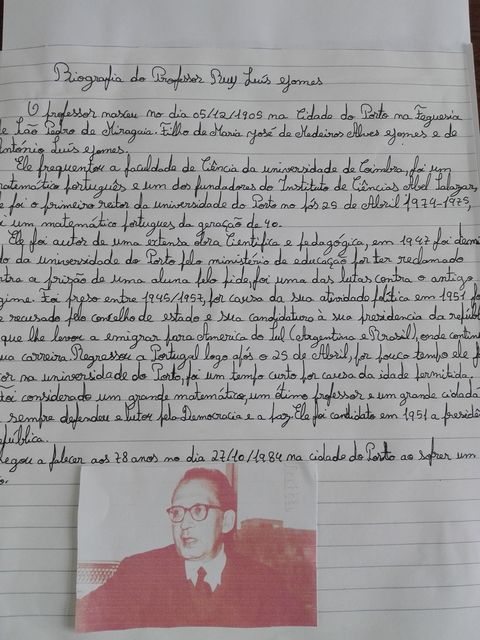 Biografia do Professor Ruy Luís Gomes
O professor nasceu no dia 05/12/1905 na Cidade do Porto na Feguesia
de São Pedro de Miragaia. Filho de Maria José de Medeiros Alves Gomes e de
António Luís Gomes.
Ele frequentou a faculdade de Ciência da universidade de Coimbra, foi um
matemático português e um dos fundadores do Instituto de Ciências Abel Salazar,
e foi o primeiro reitor da universidade do Porto no pós 25 de Abril 1974-1975,
um matemático portugues da geração de 40.
Ele foi autor de uma extensa obra Científica e pedagógica, em 1947 foi demi
do da universidade do Porto pelo ministério de educação por ter reclamado
ntra a prisão de uma aluna pelo pide, foi uma das lutas contra o antigo
gime. Foi preso entre 1945/1957, por causa da sua atividade política em 1951 foi
e recusado pelo concelho de estado e sua candidatura à sua presidencia da repúb
que lhe levou a emigrar para America do Sul (Argentina e Brasil), onde contin
ua carreira. Regressou a Portugal logo após o 25 de Abril, por pouco tempo ele f
tor na universidade do Porto, foi um tempo curto por causa da idade permitida.
foi considerado um grande matemático, um ótimo professor e um grande cidadã
sempre defendeu e lutou pela Democracia e a paz. Ele foi candidato em 1951 a preside
epública.
hegou a falecer aos 78 anos no dia 27/10/1984 na cidade do Porto ao sofrer um
o.